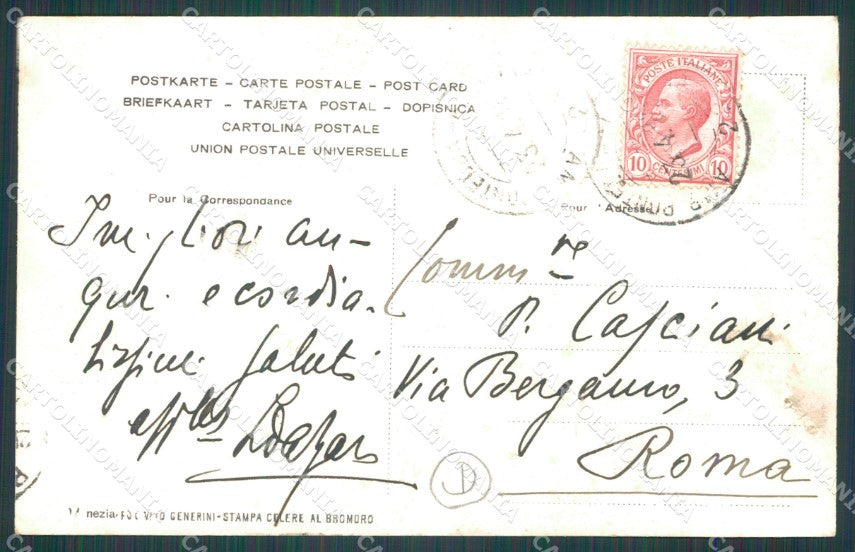 POSTKARTE – CARTE POSTALE – POST CARD
BRIEFKAART – TARJETA POSTAL – DOPISNICA
CARTOLINA POSTALE
UNION POSTALE UNIVERSELLE
POSTE ITALIANE
10 CENTESIMI 10
Pour la Correspondance
Pour l'Adresse
I migliori au-
guri e cordia-
lissimi saluti
Comm re
P. Casciani
Via Bergamo, 3
Roma
nezia-FOT VITO GENERINI-STAMPA CELERE AL BROMURO
CARTOLINOMANIA